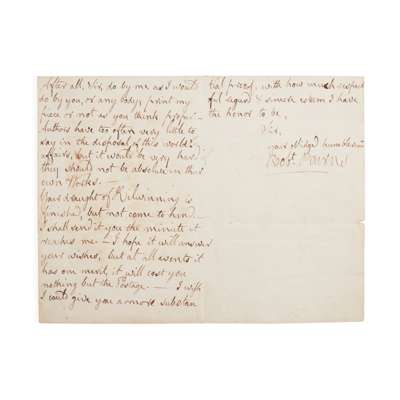 After all, Sir, do by me as I would
do by you, or any body; print my
piece or not as you think proper —
Authors have too often very little to
say in the disposal of this world's
affairs, but it would be very hard if
they should not be absolute in their
own Works. —
Your draught of Kilwinning is
finished, but not come to hand —
I shall send it you the minute it
reaches me. — I hope it will answer
your wishes, but at all events it
has one merit, it will cost you
nothing but the Postage. — I wish
I could give you a more substan
tial proof, with how much respect
ful regard & sincere esteem I have
the honor to be,
Sir,
your obliged humble servt
Robt Burns